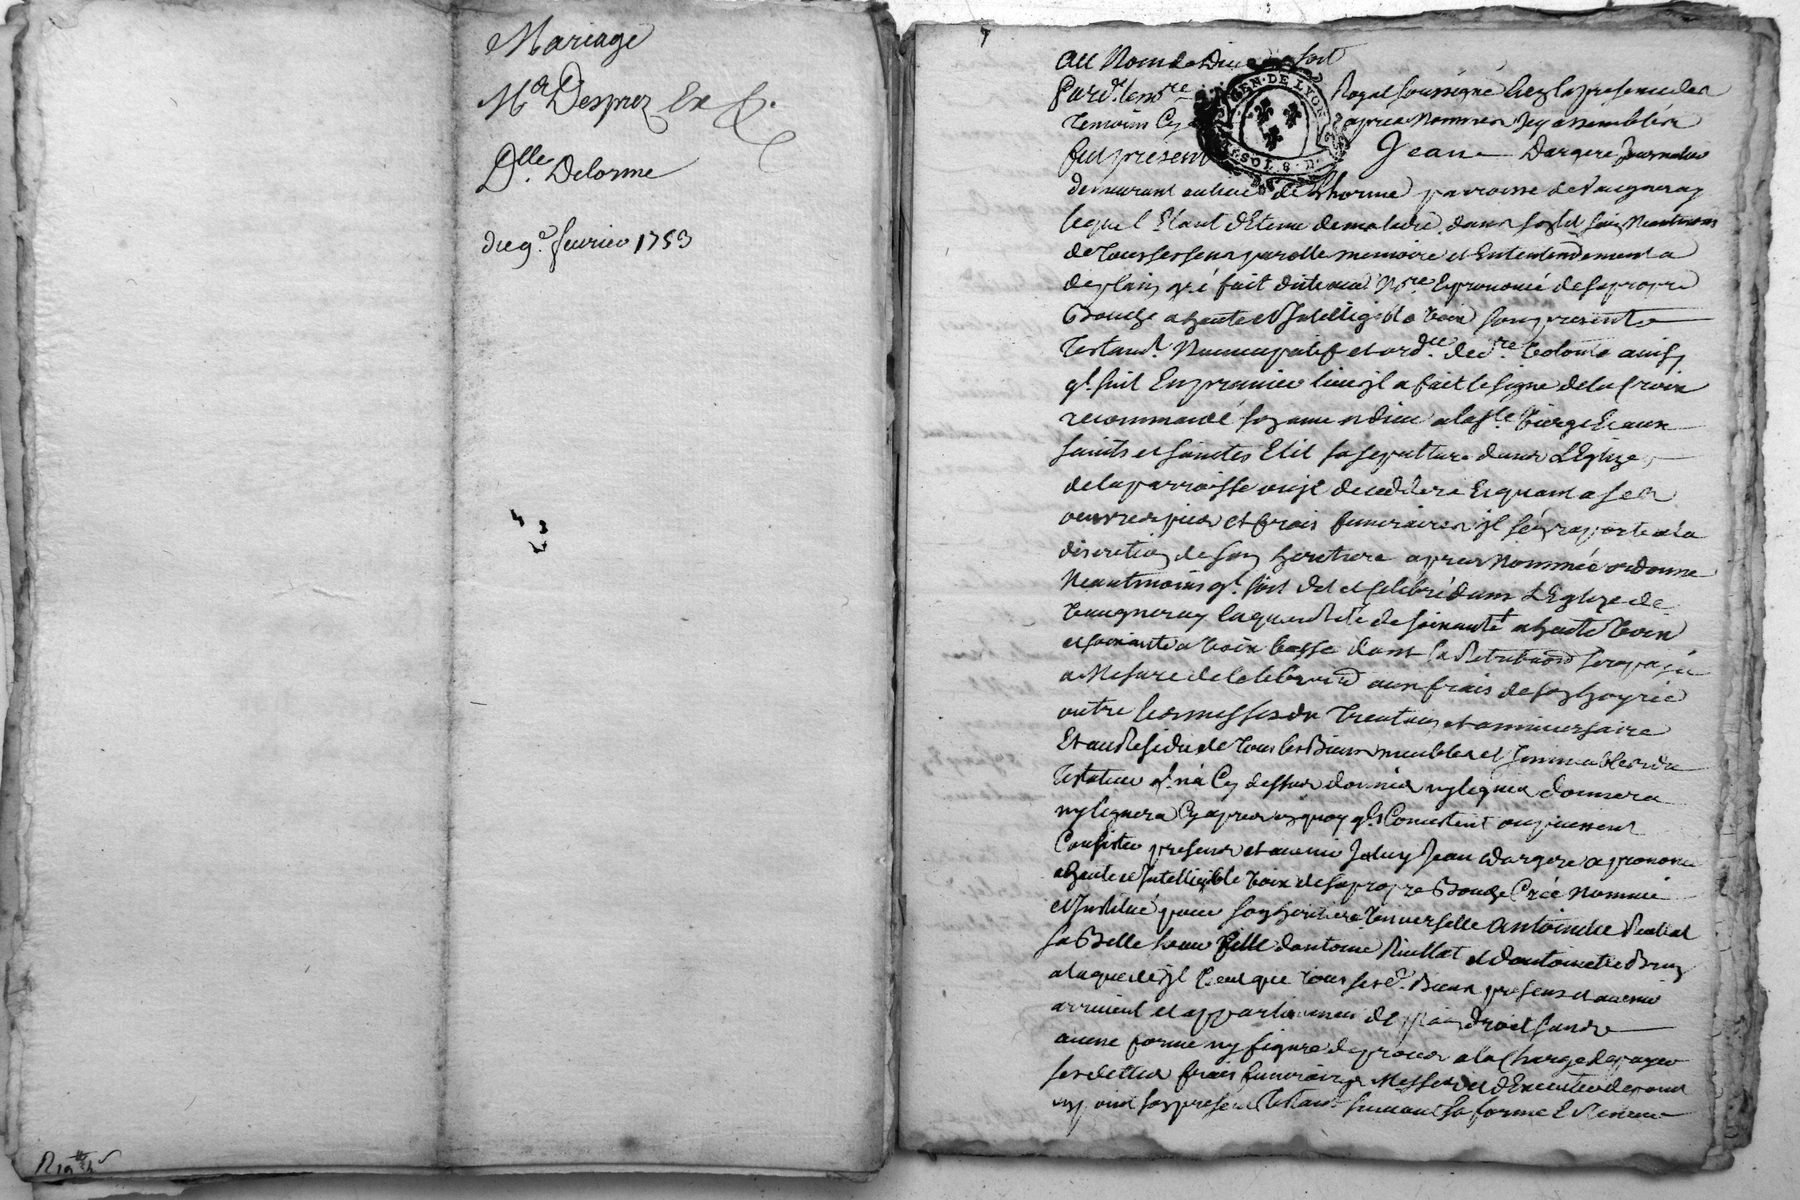 Mariage
Mr Desprez Ex
Dlle. Delorme
du 9e. fevrier 1753
au Nom de Dieu soit
Pardt. le nore Royal soussigné Et en la presence des
temoins Cy apres nommes
fut present Jean Dargere Journalier
demeurant au lieu de Lhorme parroisse de Vaugneray
lequel Etant detenu de maladie dans son lit sain Neantmoins
de tous ses sens parolle memoire et Entendement a
de plain gré fait dicté aud Nore Et prononcé de sa propre
Bouche a haute et Intelligible voix son present
testamt. Nuncupatif et ordce. de dre. volonté ainsy
ql. suit En premier lieu jl a fait le signe de la Croix
recommandé son ame a dieu a la ste. vierge Et aux
saints et saintes Elit sa sepulture dans L'Eglize
de la parroisse ou jl decedera Et quant a ses
oeuvres pies et frais funeraires jl s'en raporte a la
discretion de son heritiere apres Nommée ordonne
Neantmoins ql. soit dit et celebré dans L'Eglize de
Vaugneray la quantité de soixante a haute voix
et soixante a voix basse dont la Retribuon sera payée
a Mesure de celebraon aux frais de son hoyrie
outre les messes du trentain et anniversaire
Et au Residu de tous les Biens meubles et Immeubles du
testateur ql. n'a Cy dessus donnés ny legués donnera
ny leguera Cy apres en quoy qls Consistent ou puissent
Consister presens et avenir Jceluy Jean Dargere a prononcé
a haute et Intelligible voix de sa propre Bouche Créé Nommé
et Institué pour son heritiere universelle Antoinette
sa Belle soeur fille d'antoine et d'antoinette
a laquelle jl veut que tous sesd. Biens presens et avenir
arrivent et appartiennent de plain droit sans
aucune forme ny figure de proces a la Charge de payer
ses dettes frais funeraires Messes et d'Executer de point
en point son present testamt. suivant sa forme Et teneur